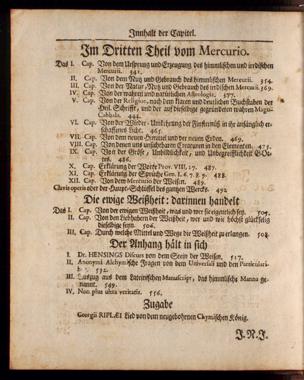 Innhalt der Capitel.
Im Dritten Theil vom Mercurio.
Das I. Cap. Von dem Ursprung und Erzeugung des himmlischen und irdischen
Mercurii. 341.
II. Cap. Von dem Nutz und Gebrauch des himmlischen Mercurii. 354.
III. Cap. Von der Natur, Nutz und Gebrauch des irdischen Mercurii 369.
IV. Cap. Von der wahren und natürlichen Astrologia. 377.
V. Cap. Von der Religion, nach dem klaren und deutlichen Buchstaben der
Heil. Schrifft, und der auf dieselbige gegründeten wahren Mago-
Cabbala. 444.
VI. Cap. Von der Wieder-Umkehrung der Finsterniß in ihr anfänglich er-
schaffenes Licht. 465.
VII. Cap. Von dem neuen Himmel und der neuen Erden. 469.
VIII. Cap. Von denen uns unsichtbaren Creaturen in den Elementen. 475.
IX. Cap. Von der Grösse, Unbildlichkeit, und Unbegreifflichkeit GOt-
tes. 486.
X. Cap. Erklärung der Worte Prov. VIII. 17. 487.
XI. Cap. Erklärung der Sprüche Gen. I. 6. 7. 8. 9. 488.
XII. Cap. Von dem Mercurio der Weisen. 489.
Clavis operis oder der Haupt-Schlüssel des gantzen Wercks. 492
Die ewige Weißheit: darinnen handelt
Das I. Cap. Von der ewigen Weißheit, was und wer sie eigentlich sey. 504.
II. Cap. Von den Liebhabern der Weißheit, wer und wie höchst glückselig
dieselbige seyn. 506.
III. Cap. Durch welche Mittel und Wege die Weißheit zu erlangen. 508.
Der Anhang hält in sich
I. Dr. HENSINGS Discurs von dem Stein der Weisen. 517.
II. Anonymi Alchymische Fragen von dem Universali und den Particulari-
bus. 532.
III. Auszug aus dem Lateinischen Manuscript, das himmlische Manna ge-
nannt. 549.
IV. Non plus ultra veritatis. 556.
Zugabe
Georgii RIPLÆI Lied von dem neugebohrnen Chymischen König.
J. N. J.